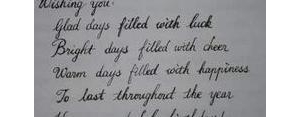 Wishing you:
Glad days filled with luck
Bright days filled with cheer
Warm days filled with happiness
To last throughout the year